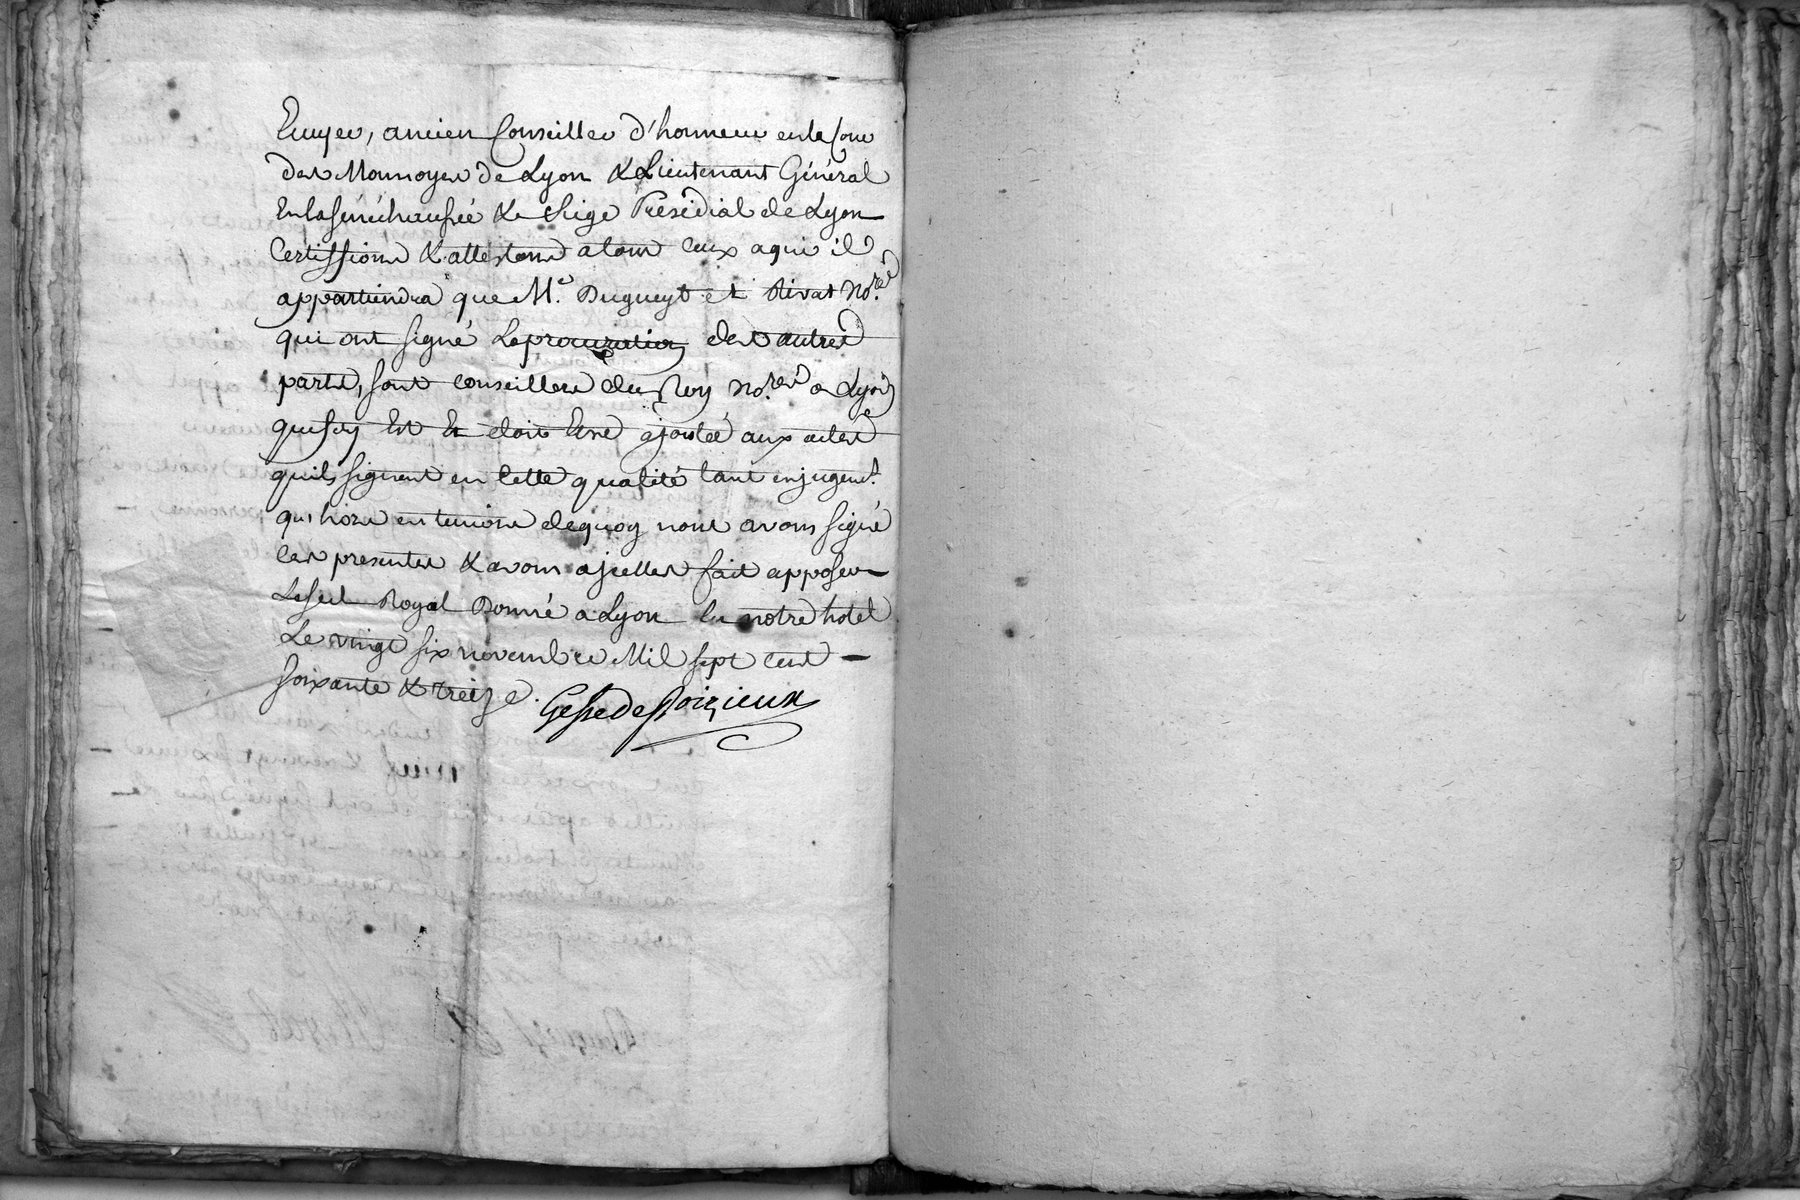 Ecuyer, ancien Conseiller d'honneur en la Cour
des Monnoyes de Lyon & Lieutenant Général
En la sénéchaussée & siege Présidial de Lyon
Certiffions & attestons a tous ceux a qui il
appartiendra que Me. Dugueyt et Rivat No.res
qui ont signé la procuration des autres
parts, sont conseillers du Roy no.res a Lyon
que foy Est Et doit Etre ajoutée aux actes
qu'ils signent en cette qualité tant en jugemt.
que hors en temoins de quoy nous avons signé
ces presentes & avons a jcelles fait apposer
Le scel Royal Donné a Lyon En notre hotel
Le vingt six novembre Mil sept cent
soixante & treize.